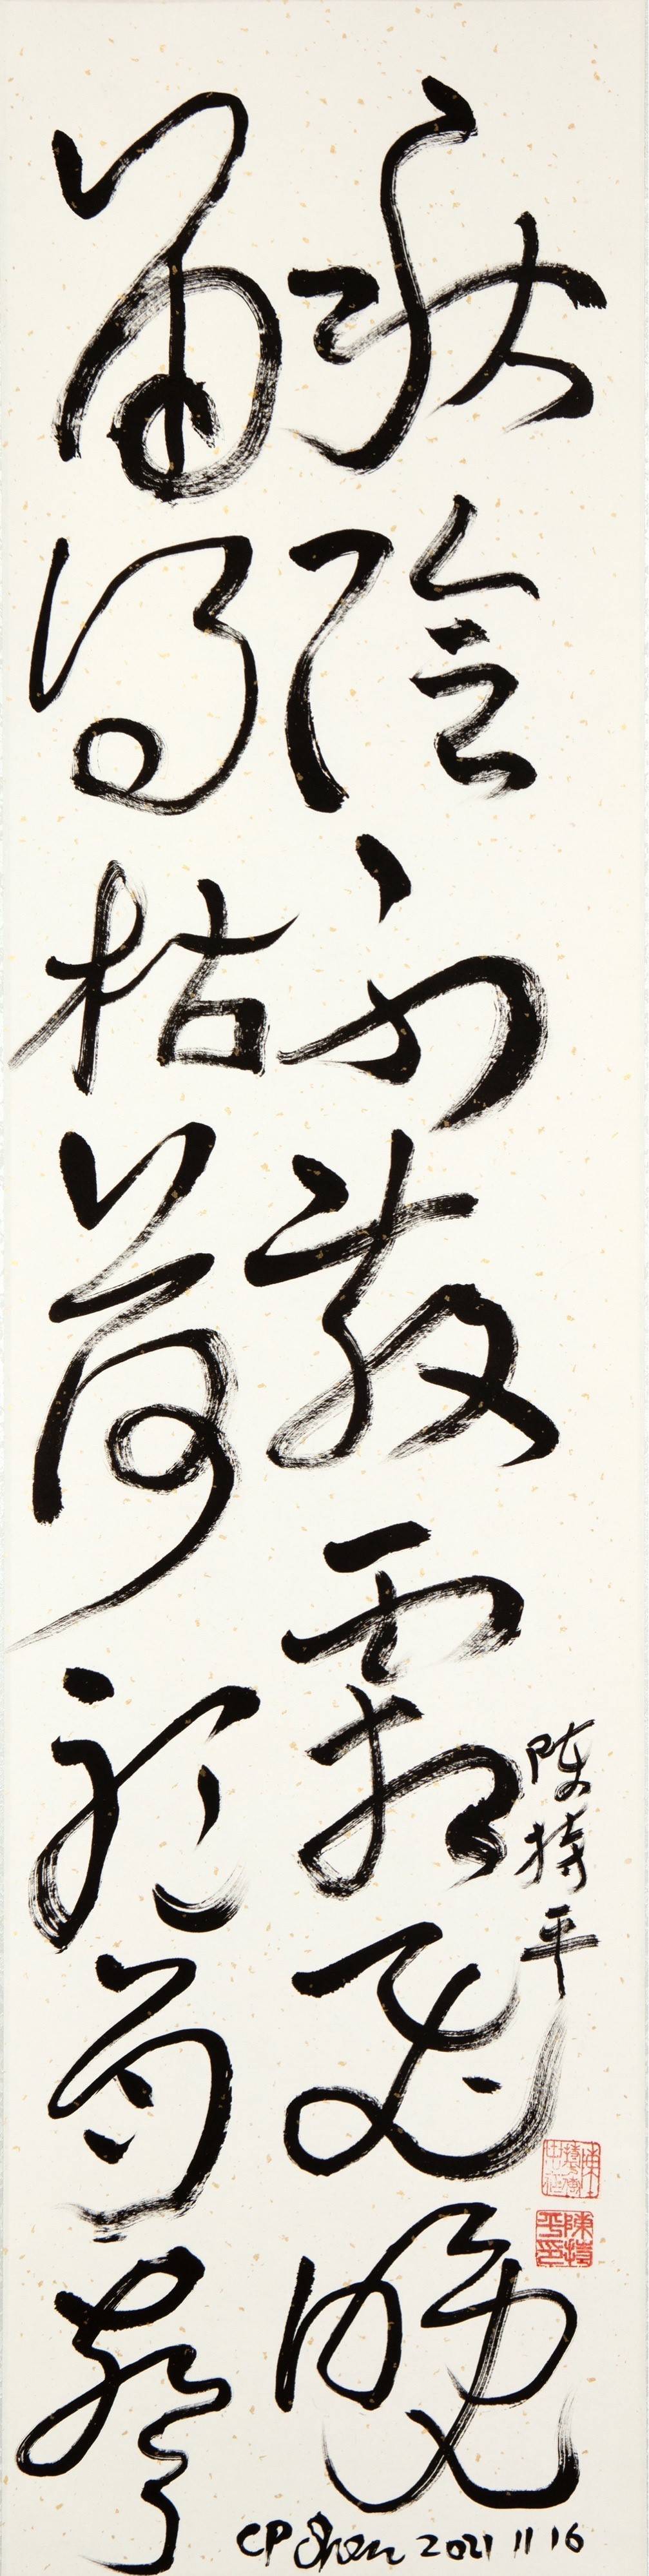 秋陰不散霜飛晚
留得枯荷聽雨聲
陈持平
CP Chen 2021 11 16